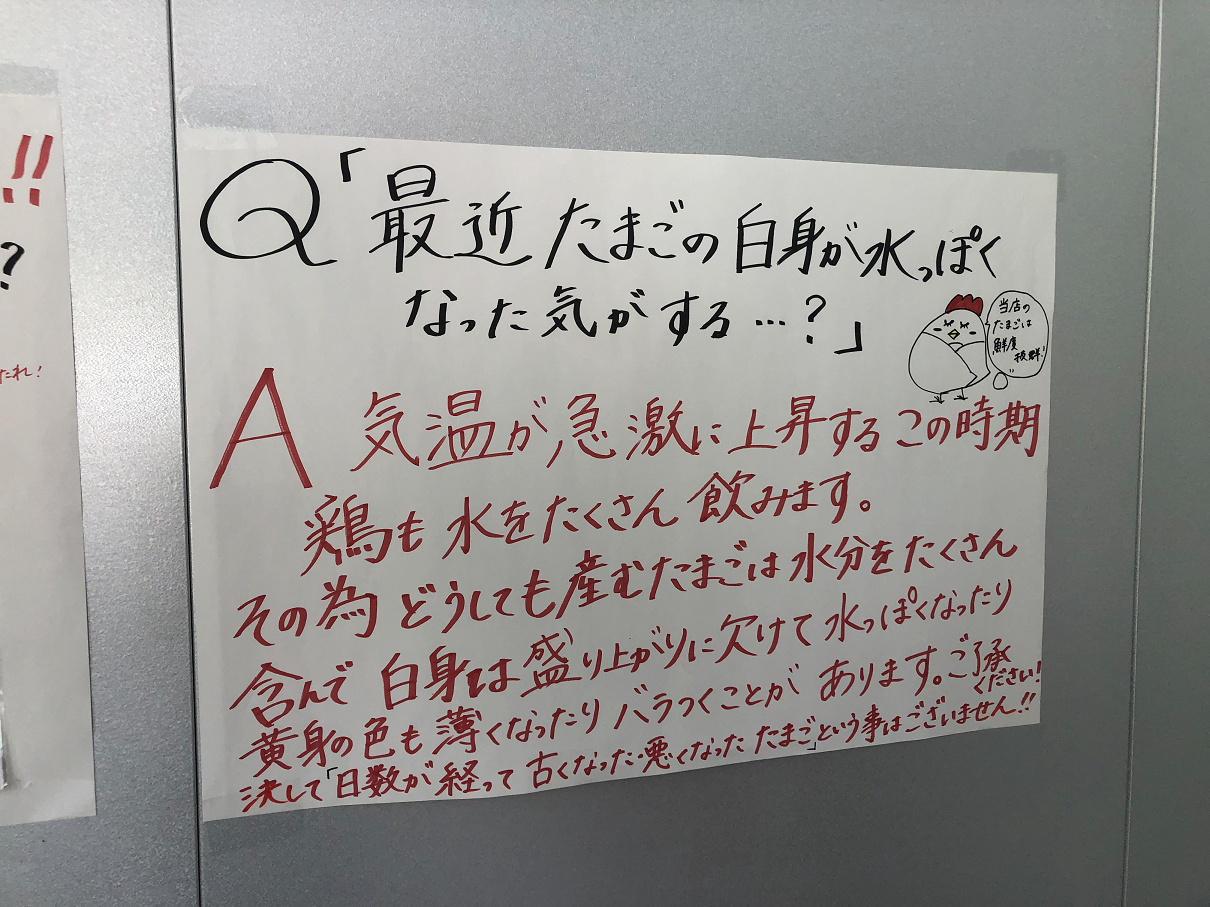 !!
?
たれ!
Q「最近たまごの白身が水っぽく
なった気がする…?」
当店の
たまごは
鮮度
抜群!!
A 気温が急激に上昇するこの時期
鶏も水をたくさん飲みます。
その為どうしても産むたまごは水分をたくさん
含んで白身は盛り上がりに欠けて水っぽくなったり
黄身の色も薄くなったりバラつくことがあります。ご了承
ください!
決して「日数が経って古くなった・悪くなったたまご」という事はございません!!